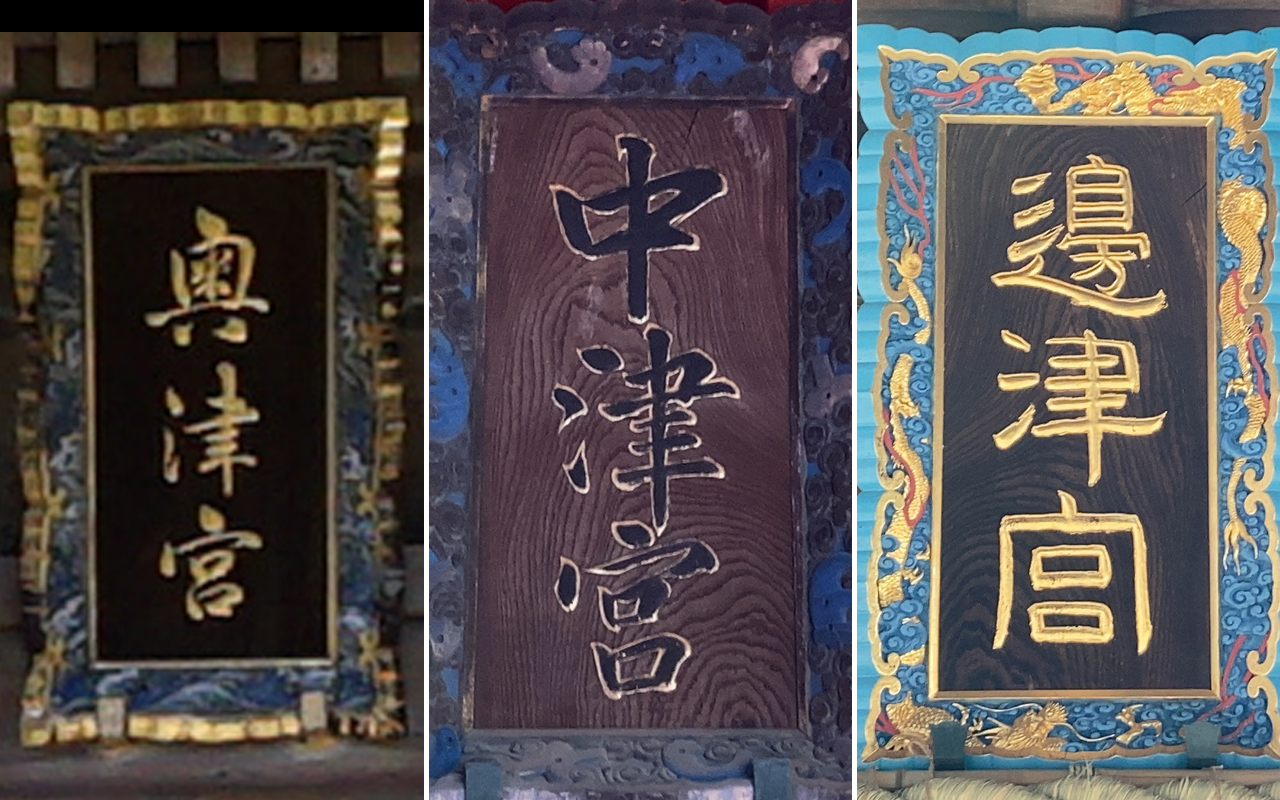 奧津宮
中津宮
邊津宮